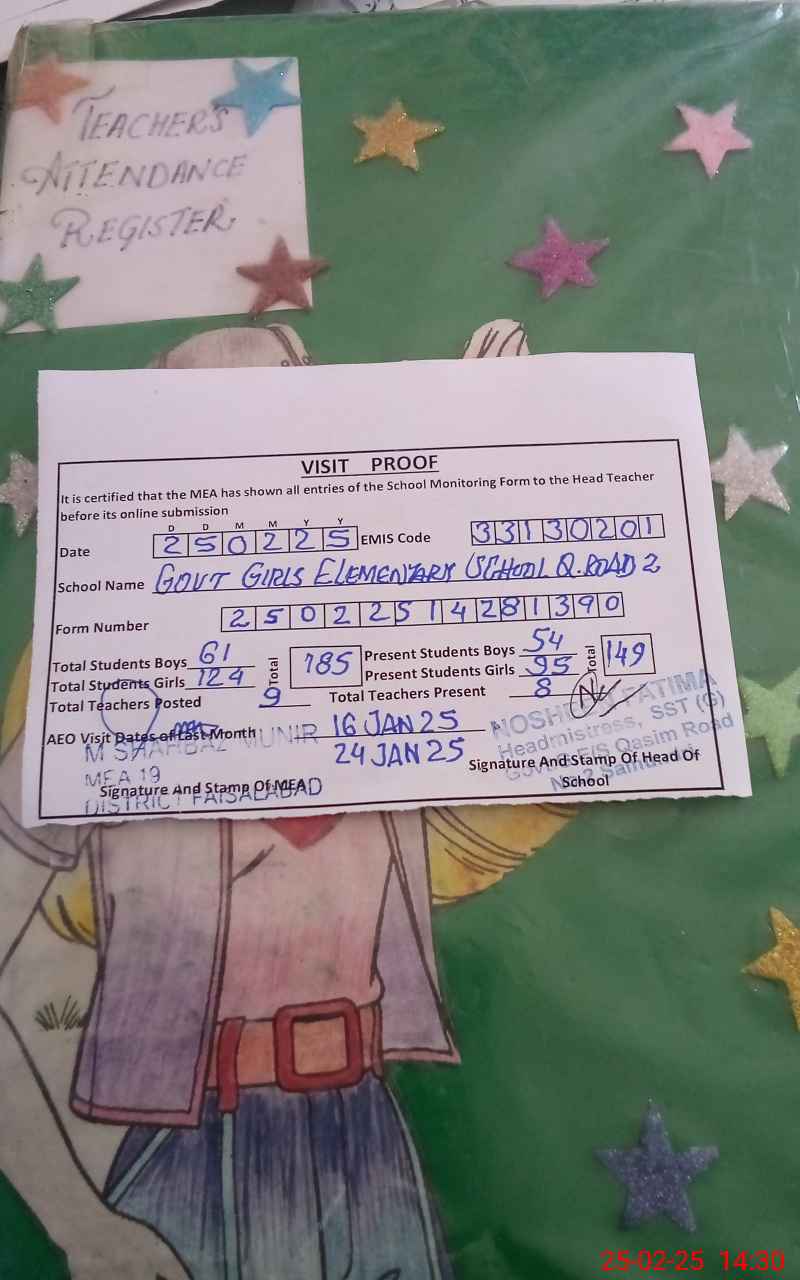 TEACHER'S
ATTENDANCE
REGISTER
VISIT PROOF
It is certified that the MEA has shown all entries of the School Monitoring Form to the Head Teacher
before its online submission
D D M M Y Y
Date 250225 EMIS Code 33130201
School Name GOVT GIRLS ELEMENTARY SCHOOL Q.ROAD 2
Form Number 25022514281390
Total Students Boys 61 Total 185 Present Students Boys 54 Total 149
Total Students Girls 124 Present Students Girls 95
Total Teachers Posted 9 Total Teachers Present 8
AEO Visit Dates of Last Month 16 JAN 25
24 JAN 25
M SHAHBAZ MUNIR
MEA 19
DISTRICT FAISALABAD
Signature And Stamp Of MEA
NOSHEEN FATIMA
Headmistress, SST (G)
Qasim Road
No.2
Signature And Stamp Of Head Of
School
25-02-25 14:30